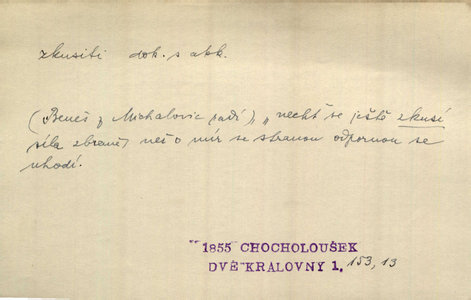 zkusiti dok. s akk.
(Beneš z Michalovic radí) „nechť se ještě zkusí
síla zbraně, než o mír se stranou odpornou se
uhodí.
1855 CHOCHOLOUŠEK
DVĚ KRALOVNY 1, 153, 13